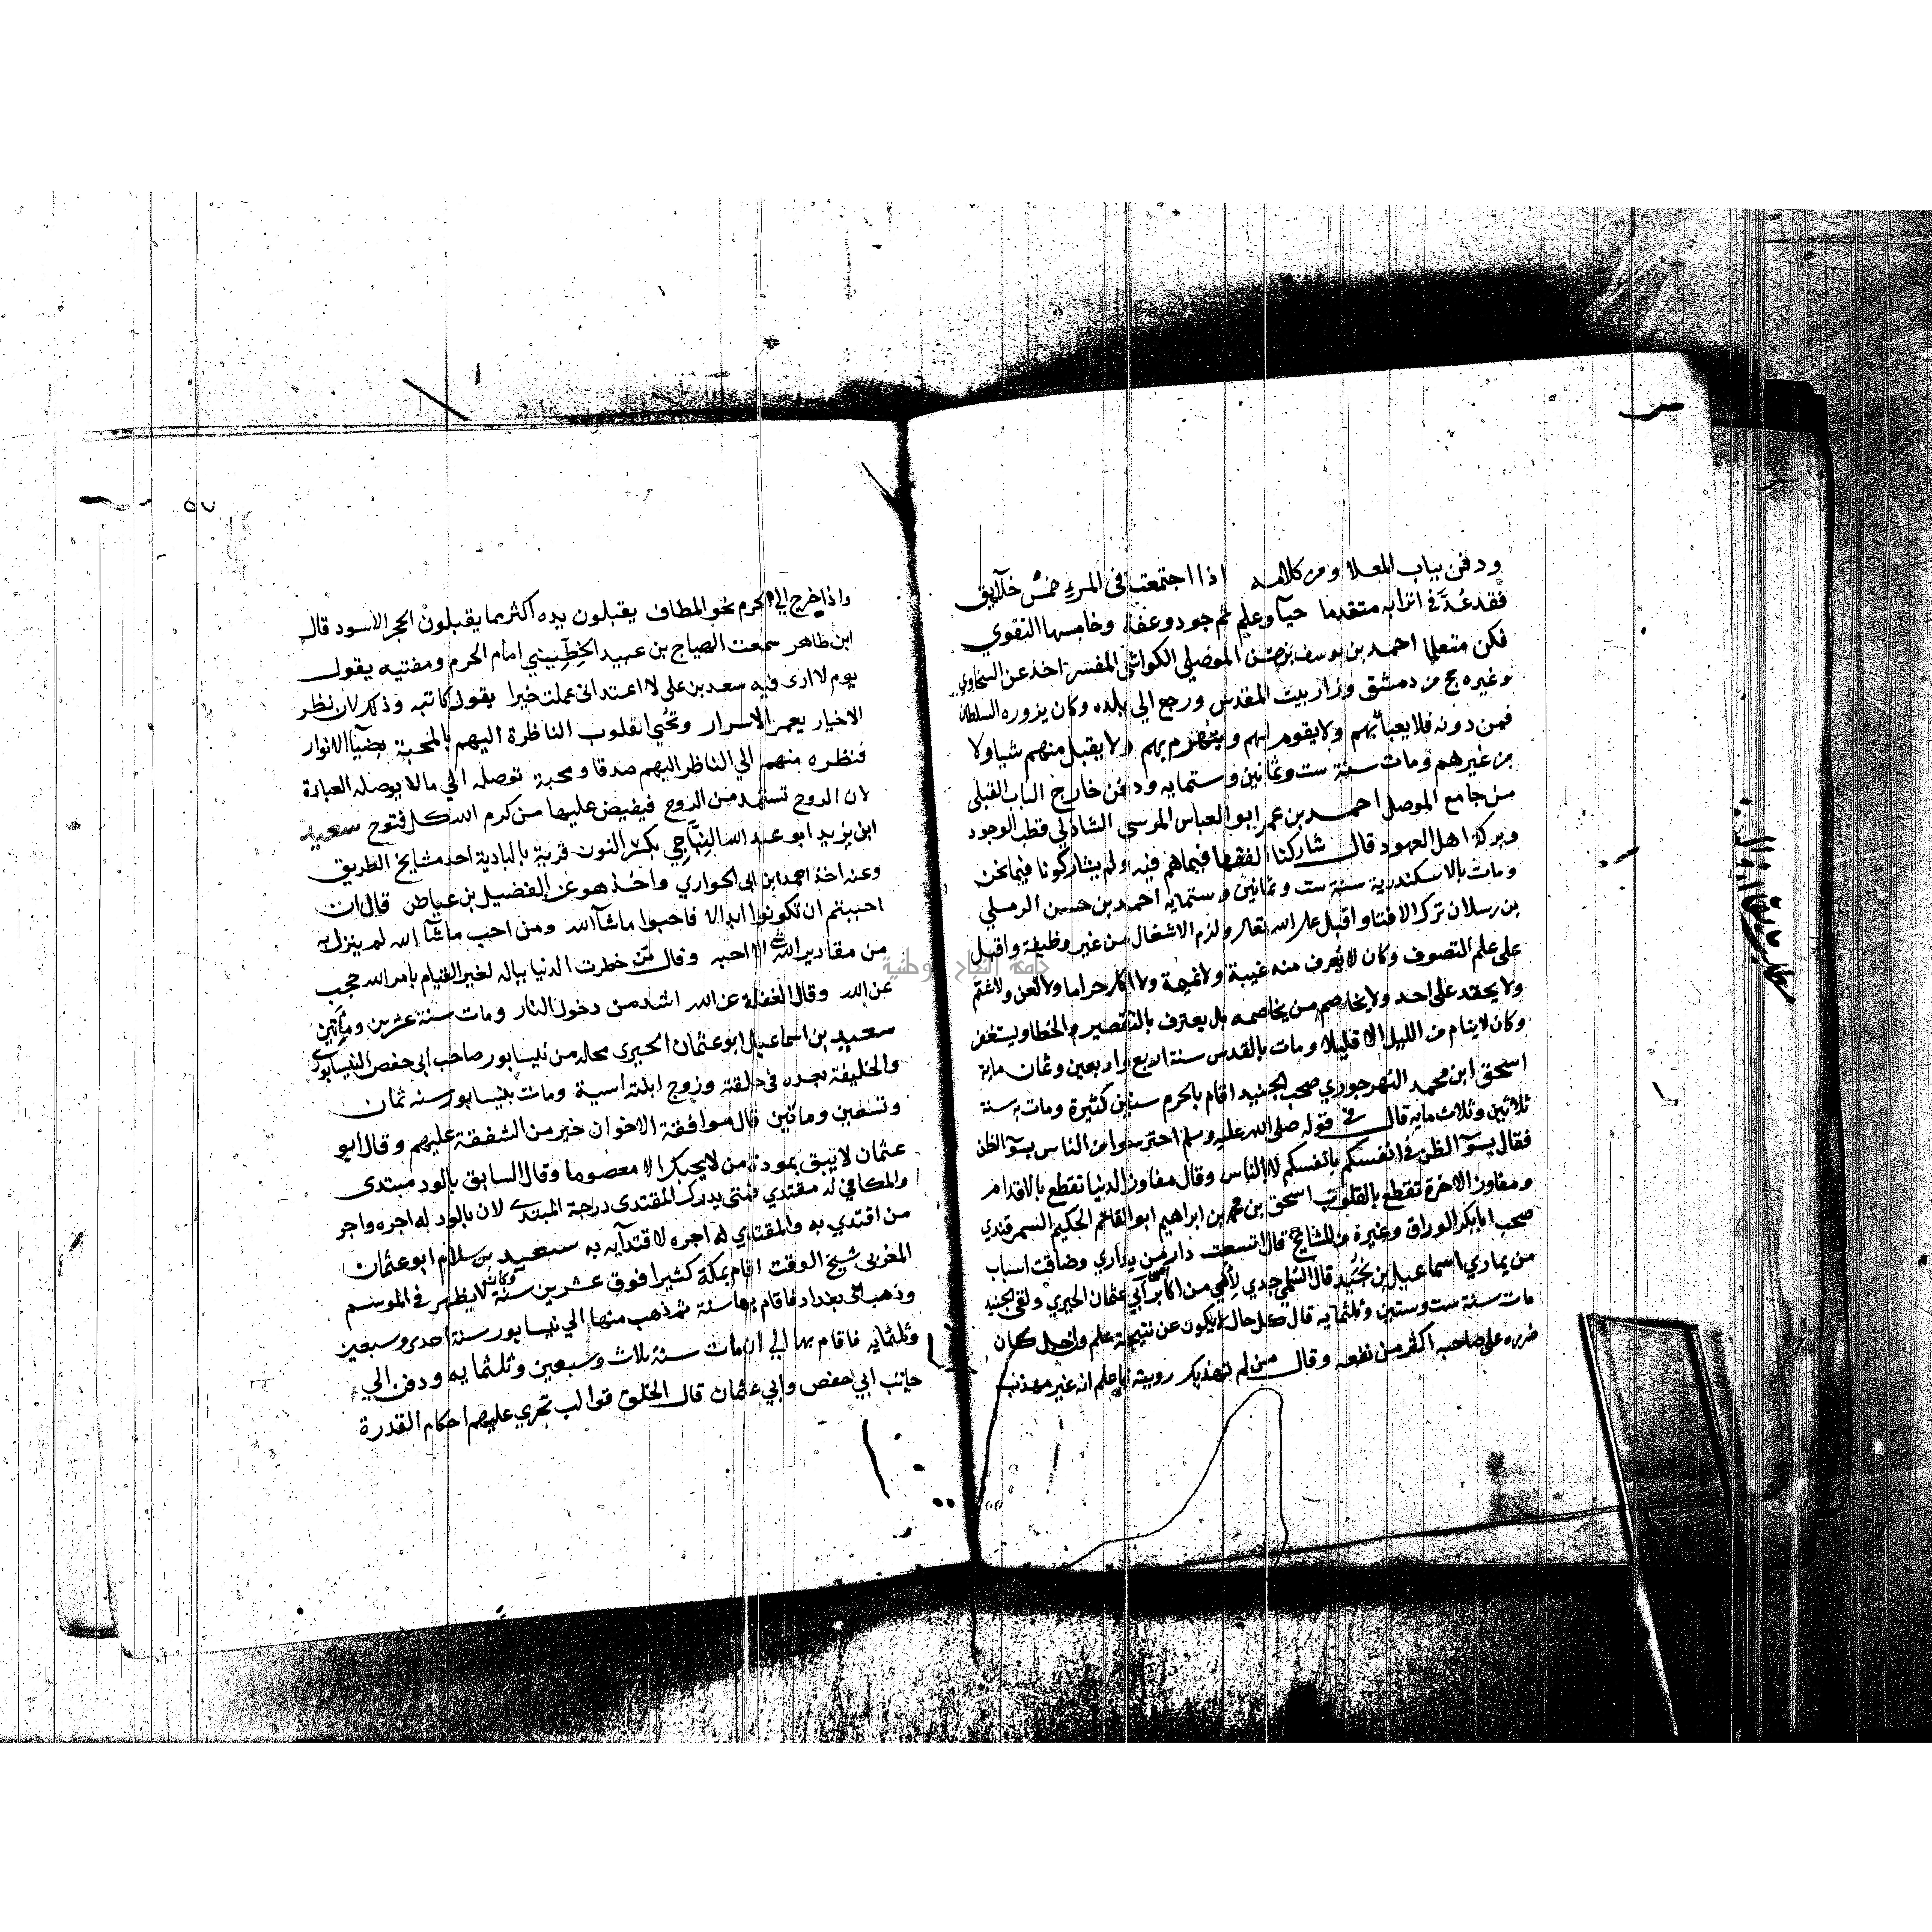 ودفن بباب المعلا ومن كلامه اذا اجتمعت فى المرء خمس خلآيق
فقد عُدَّ فى اترابه متقدما حيآ وعلم ثم جود وعفة وخامسها التقوي
فكن متعلما احمد بن يوسف بن حسن الموصلي الكواشى المفسر اخذ عن السخاوي
وغيره حج من دمشق وزار بيت المقدس ورجع الي بلده وكان يزوره السلطان
فمن دونه فلا يعبأ بهم ولا يقوم لهم ويتبرم بهم ولا يقبل منهم شيا ولا
من غيرهم ومات سنة ست وثمانين وستمايه ودفن خارج الباب القبلى
من جامع الموصل احمد بن عمر ابو العباس المرسي الشاذلي قطب الوجود
وبركة اهل العهود قال شاركنا الفقها فيما هم فيه ولم يشاركونا فيما نحن
ومات بالاسكندرية سنة ست وثمانين وستمايه احمد بن حسين الرملي
بن رسلان ترك الافتا واقبل على الله تعالى ولزم الاشغال من غير وظيفة واقبل
على علم التصوف وكان لا يُعرف منه غيبة ولا نميمة ولا اكل حراما ولا لعن ولا شتم
ولا يحقد على احد ولا يخاصم من يخاصمه بل يعترف بالتقصير والخطا ويستغفر
وكان لا ينام من الليل الا قليلا ومات بالقدس سنة اربع واربعين وثمان ماية
اسحق ابن محمد النهرجوري صحب الجنيد اقام بالحرم سنين كثيرة ومات به سنة
ثلاثين وثلاث مايه قال في قوله صلى الله عليه وسلم احترسوا من الناس بسوآ الظن
فقال بسوآ الظن في انفسكم بانفسكم لا بالناس وقال مفاوز الدنيا تقطع بالاقدام
ومفاوز الاخرة تقطع بالقلوب اسحق بن محمد بن ابراهيم ابو القاسم الحكيم السمرقندي
صحب ابا بكر الوراق وغيره من المشايخ قال اتسعت دار من يداري وضاقت اسباب
من يماري اسماعيل بن نجُيد قال السُّلمي جدي لأمي من اكابر اصحاب أبي عثمان الحيري ولقى الجنيد
مات سنة ست وستين وثلثمايه قال كل حال لا يكون عن نتيجة علم وان جل كان
ضرره على صاحبه اكثر من نفعه وقال من لم تهذبك رويته فاعلم انه غير مهذب
٥٧
واذا خرج الي الحرم نحو المطاف يقبلون يده اكثر مما يقبلون الحجر الاسود قال
ابن طاهر سمعت الصياج بن عبيد الخِطّيني امام الحرم ومفتيه يقول
يوم لا ارى فيه سعد بن على لا اعتد انى عملت خيرا يقول كاتبه وذلك لان نظر
الاخيار يعمر الاسرار ويحُيي القلوب الناظرة اليهم بالمحبة بضيآ الانوار
فنظره منهم الي الناظر اليهم صدقا ومحبة توصله الي ما لا يوصله العبادة
لان الروح تستمد من الروح فيفيض عليها من كرم الله كل فتوح سعيد
ابن يزيد ابو عبد الله النِبَّاجي بكسر النون قرية بالبادية احد مشايخ الطريق
وعنه اخذ احمد ابن ابى الحواري واخذ هو عن الفضيل بن عياض قال ان
احببتم ان تكونوا ابدالا فاحبوا ما شآ الله ومن احب ما شآ الله لم ينزل به
من مقادير الله شي الا احبه وقال من خطرت الدنيا بباله لغير القيام بامر الله حجب
عن الله وقال الغفلة عن الله اشد من دخول النار ومات سنة عشرين ومأتين
سعيد بن اسماعيل ابو عثمان الحيري محلة من نيسابور صاحب ابى حفص النيسابوري
والخليفة بعده فى حلقته وزوج ابنته اسية ومات بنيسابور سنه ثمان
وتسعين وماتين قال موافقة الاخوان خير من الشفقة عليهم وقال ابو
عثمان لا يبق بمودة من لا يحبك الا معصوما وقال السابق بالود مبتدى
والمكافي له مقتدي فمتى يدرك المقتدى درجة المبتدى لان بالود له اجره واجر
من اقتدي به والمقتدي له اجره لاقتدآيه به سعيد بن سلام ابو عثمان
المغربى شيخ الوقت اقام بمكة كثيرا فوق عشرين سنة وكان لا يظهر في الموسم
وذهب الى بغداد فاقام بها سنة ثم ذهب منها الي نيسابور سنة احدى وسبعين
وثلثمايه فاقام بها الي ان مات سنة ثلاث وسبعين وثلثمايه ودفن الي
جانب ابي حفص وابي عثمان قال الخلق قوالب تجري عليهم احكام القدرة